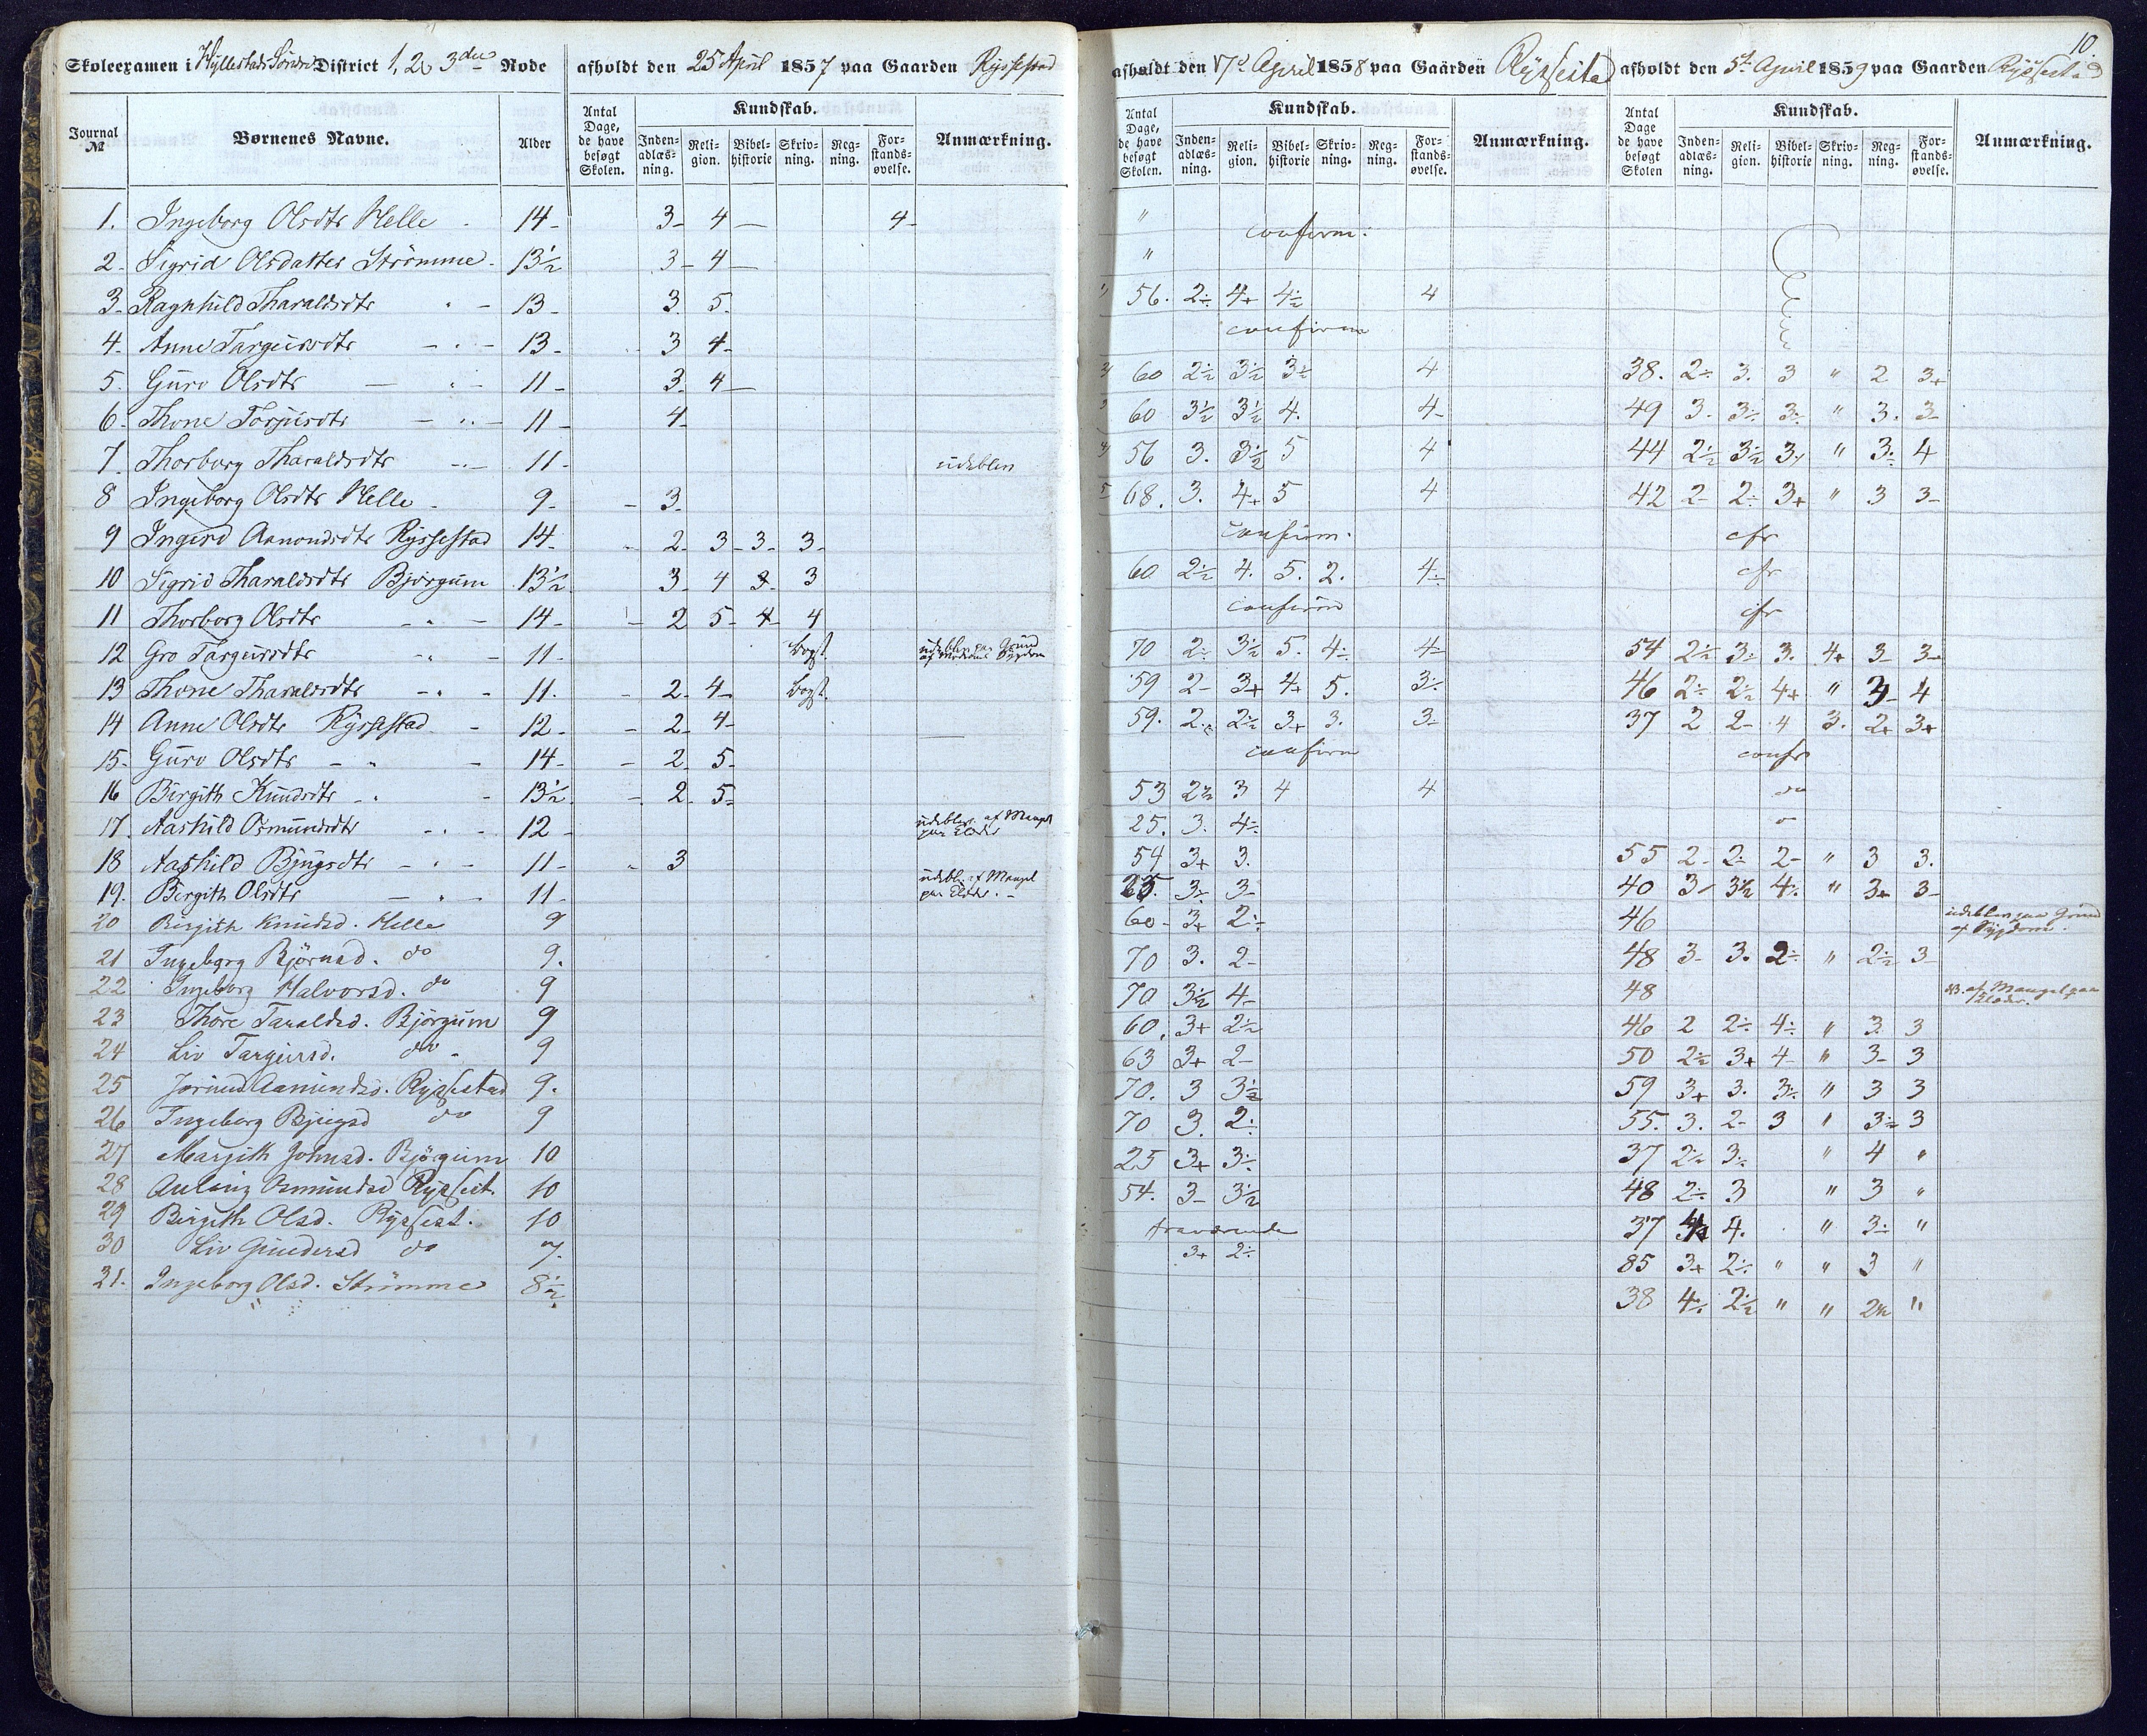 10.
Skoleexamen i Hyllestads Søndre District 1, 2 & 3die Rode afholdt den 25 April 1857 paa Gaarden Ryssestad
afholdt den 17de April 1858 paa Gaarden Rysseistad afholdt den 5te April 1859 paa Gaarden Ryssestad
Journal № Børnenes Navne. Alder Antal Dage, de have besøgt Skolen. Kundskab. Inden-adlæs-ning. Reli-gion. Bibel-historie Skriv-ning. Reg-ning. For-stands-øvelse. Anmærkning.
Antal Dage, de have besøgt Skolen. Kundskab. Inden-adlæs-ning. Reli-gion. Bibel-historie Skriv-ning. Reg-ning. For-stands-øvelse. Anmærkning.
Antal Dage de have besøgt Skolen Kundskab. Inden-adlæs-ning. Reli-gion. Bibel-historie Skriv-ning. Reg-ning. For-stands-øvelse. Anmærkning.
1. Ingeborg Olsdtr Helle - 14 - 3- 4 - 4- " confirm.
2- Sigrid Olsdatter Strømme - 13½ 3- 4 - "
3- Ragnhild Tharaldsdtr " - 13 - 3. 5. 56. 2÷ 4+ 4½ 4
4- Anne Targeirsdtr - " - 13 - 3 4- confirm
5. Guro Olsdtr - " - 11 - 3. 4 - 60 2½ 3½ 3½ 4 38. 2÷ 3. 3 " 2 3+
6- Thone Torjusdtr - " - 11 - 4- 60 3½ 3½ 4. 4- 49 3- 3÷ 3÷ " 3. 3-
7. Thorborg Tharaldsdtr - - 11 - udeblev 56 3. 3½ 5 4 44 2½ 3½ 3 " 3÷ 4
8 Ingeborg Olsdtr Helle - 9 - - 3- 68. 3. 4+ 5 4 42 2- 2÷ 3+ " 3 3-
9 Ingerd Aanondsdtr Ryssestad 14 - - 2- 3- 3- 3- confirm. cfr
10 Sigrid Tharaldsdtr Bjørgum 13½ 3- 4 3- 3 60 2½ 4. 5. 2. 4÷ cfr
11 Thorborg Olsdtr - " - 14 - - 2 5- 4- 4 confirm cfr
12 Gro Targeirsdtr " - 11 - bogst. udeblev paa Grund af Sygdom 70 2÷ 3½ 5. 4÷ 4- 54 2½ 3÷ 3. 4+ 3- 3-
13 Thone Tharaldsdtr - " - 11. - 2- 4- bogst. 59 2- 3+ 4+ 5. 3÷ 46 2÷ 2½ 4+ " 3- 4
14 Anne Olsdtr Ryssestad - 12 - - 2- 4- 59. 2÷ 2½ 3+ 3. 3- 37 2 2- 4 3. 2+ 3+
15- Guro Olsdtr - " - 14 - - 2- 5- confirm confr
16 Birgith Knudsdtr - " - 13½ - 2. 5- 53 2½ 3 4 4 do
17. Aashild Osmundsdtr - " - 12 - udeblev af Mangel paa Klæder 25. 3. 4÷
18 Aashild Bjugsdtr - " - 11 - - 3 54 3+ 3. 55 2- 2÷ 2- " 3 3.
19. Bergith Olsdtr - " - 11 - udebl. af Mangel paa Klæder. - 25. 3÷ 3- 40 3- 3½ 4÷ " 3+ 3-
20 Birgith Knudsd. Helle 9 60- 3+ 2÷ 46 udeblev paa Grund af Sygdom.
21 Ingeborg Bjørnsd. do 9. 70 3. 2- 48 3- 3. 2÷ " 2½ 3-
22 Ingeborg Halvorsd. do 9 70 3½ 4- 48 af Mangel paa Klæder.
23 Thore Taraldsd. Bjørgum 9 60. 3+ 2½ 46 2 2÷ 4÷ " 3. 3
24 Liv Targeirsd. do - 9 63 3+ 2- 50 2½ 3+ 4- " 3- 3
25 Jorund Aamundsd. Ryssestad 9. 70. 3 3½ 59 3+ 3. 3÷ " 3 3
26 Ingeborg Bjugsd do 9 70 3. 2÷ 55. 3. 2- 3 " 3½ 3
27 Margith Johnsd. Bjørgum 10 25 3+ 3÷ 37 2½ 3÷ " 4 "
28 Aslaug Osmundsd Ryssest. 10 54. 3- 3½ 48 2÷ 3 " 3 "
29 Birgith Olsd. Ryssest. 10 fraværende 37 4. " 3÷ "
30 Liv Gundersd do 7. 3+ 2÷ 85 3+ 2÷ " " 3 "
31. Ingeborg Olsd. Strømme 8½ 38 4÷ 2½ " " 2½ "